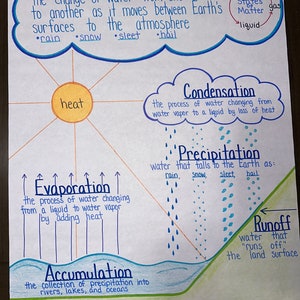 the change of water
to another as it moves between Earth's
surfaces to the atmosphere
•rain •snow •sleet •hail
States
Matter
gas
liquid
heat
Condensation
the process of water changing from
water vapor to a liquid by loss of heat
Precipitation
water that falls to the Earth as:
rain snow sleet hail
Evaporation
the process of water changing
from a liquid to water vapor
by adding heat
Runoff
water that
"runs off"
the land surface
Accumulation
the collection of precipitation into
rivers, lakes, and oceans